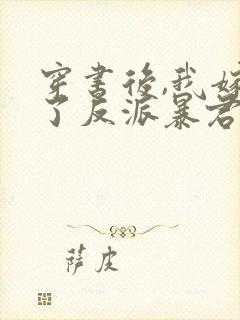 穿书后,我嫁
了反派暴君
萨皮